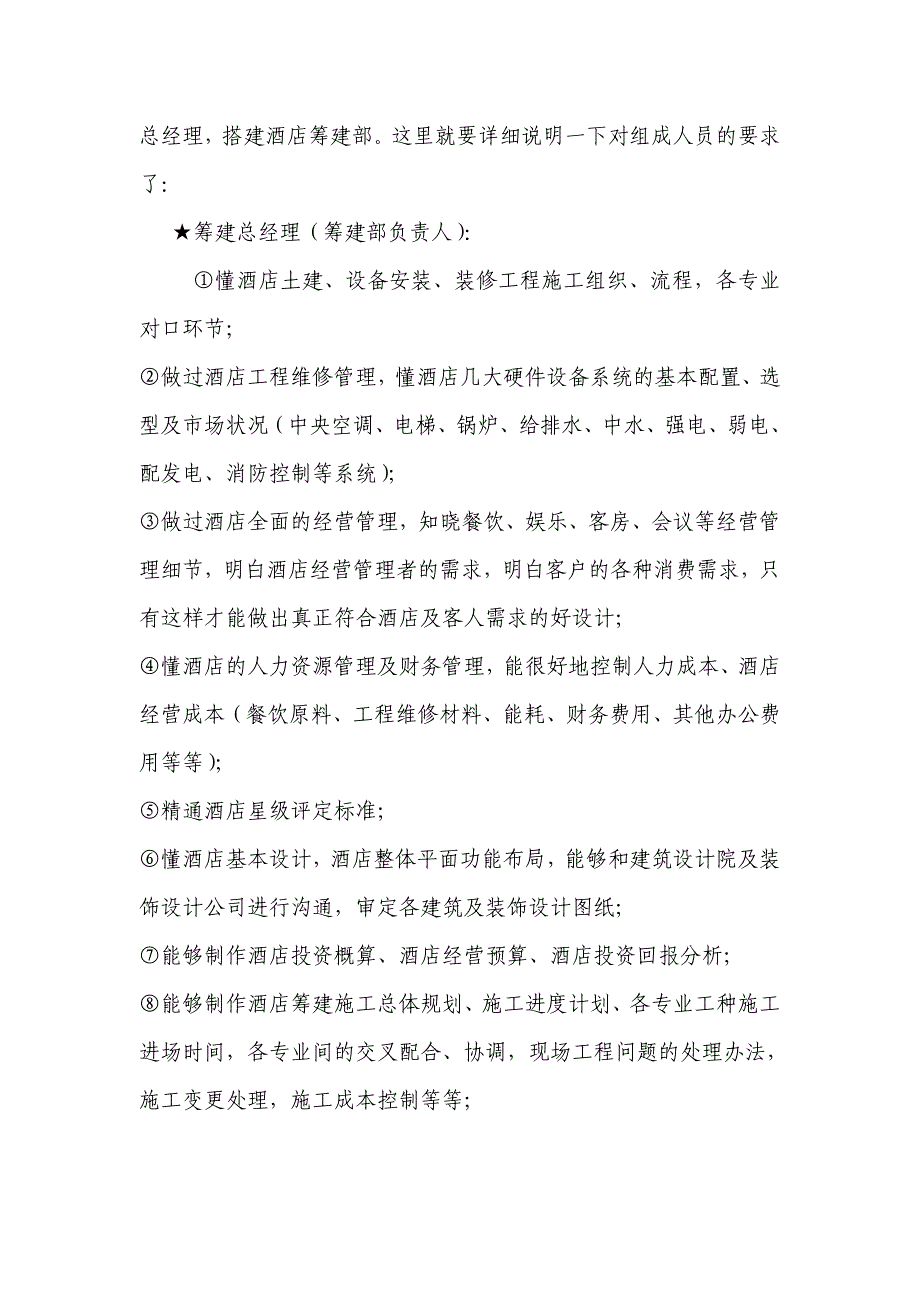 总经理，搭建酒店筹建部。这里就要详细说明一下对组成人员的要求
了：
★筹建总经理（筹建部负责人）：
①懂酒店土建、设备安装、装修工程施工组织、流程，各专业
对口环节；
②做过酒店工程维修管理，懂酒店几大硬件设备系统的基本配置、选
型及市场状况（中央空调、电梯、锅炉、给排水、中水、强电、弱电、
配发电、消防控制等系统）；
③做过酒店全面的经营管理，知晓餐饮、娱乐、客房、会议等经营管
理细节，明白酒店经营管理者的需求，明白客户的各种消费需求，只
有这样才能做出真正符合酒店及客人需求的好设计；
④懂酒店的人力资源管理及财务管理，能很好地控制人力成本、酒店
经营成本（餐饮原料、工程维修材料、能耗、财务费用、其他办公费
用等等）；
⑤精通酒店星级评定标准；
⑥懂酒店基本设计，酒店整体平面功能布局，能够和建筑设计院及装
饰设计公司进行沟通，审定各建筑及装饰设计图纸；
⑦能够制作酒店投资概算、酒店经营预算、酒店投资回报分析；
⑧能够制作酒店筹建施工总体规划、施工进度计划、各专业工种施工
进场时间，各专业间的交叉配合、协调，现场工程问题的处理办法，
施工变更处理，施工成本控制等等；